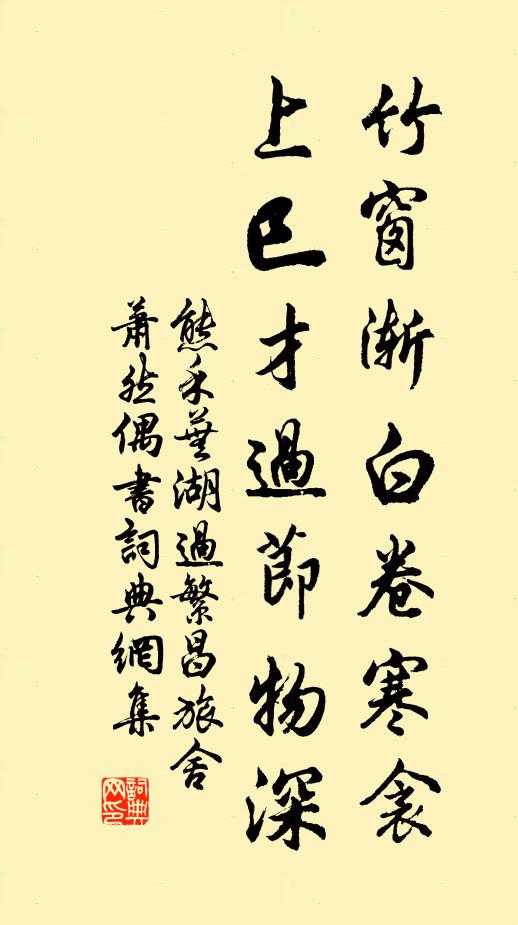 竹窗渐白卷寒衾
上巳才過節物深
熊禾蕪湖過繁昌旅舍
蕭然偶書詞典網集
詞典
网印